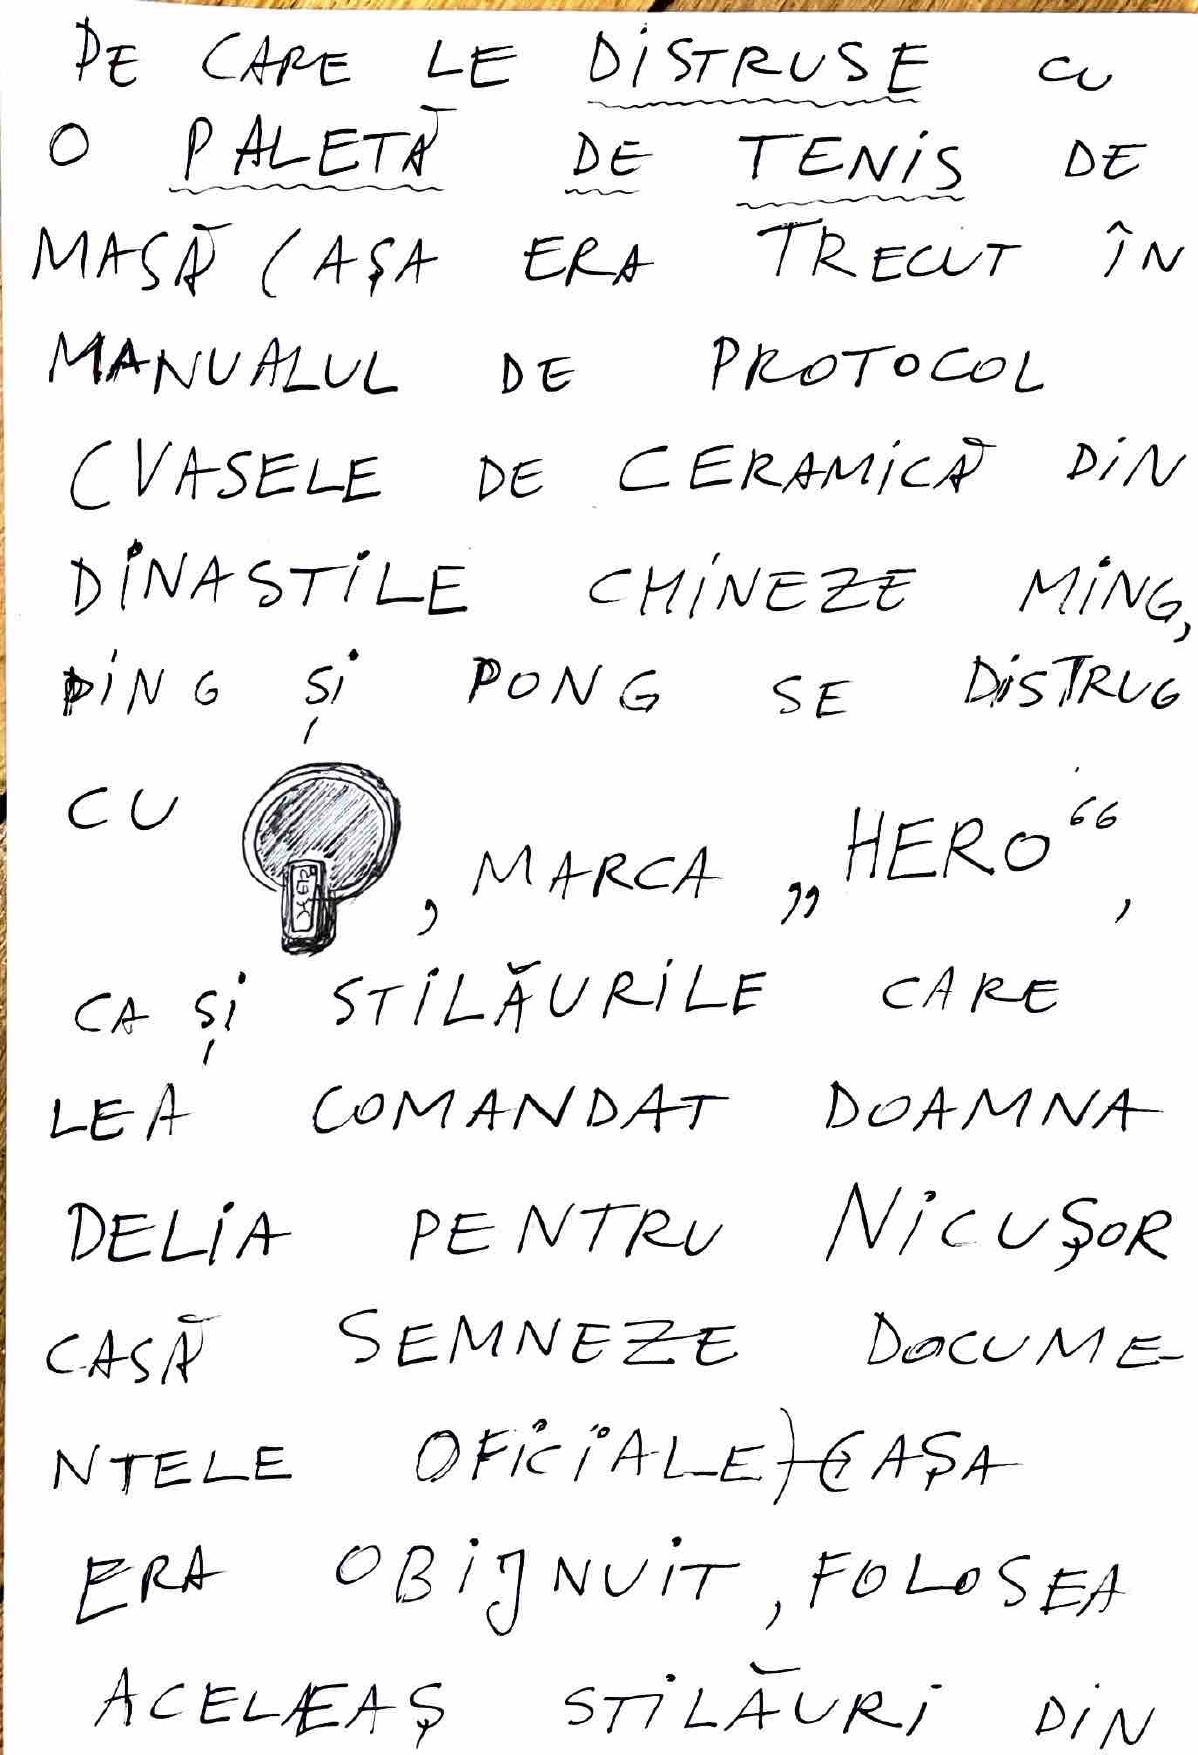 PE CARE LE DISTRUSE CU
O PALETĂ DE TENIS DE
MASĂ (AȘA ERA TRECUT ÎN
MANUALUL DE PROTOCOL
(VASELE DE CERAMICĂ DIN
DINASTILE CHINEZE MING,
PING ȘI PONG SE DISTRUG
CU , MARCA „HERO“,
CA ȘI STILĂURILE CARE
LEA COMANDAT DOAMNA
DELIA PENTRU NICUȘOR
CASĂ SEMNEZE DOCUME-
NTELE OFICIALE) (AȘA
ERA OBIJNUIT, FOLOSEA
ACELEAȘ STILĂURI DIN